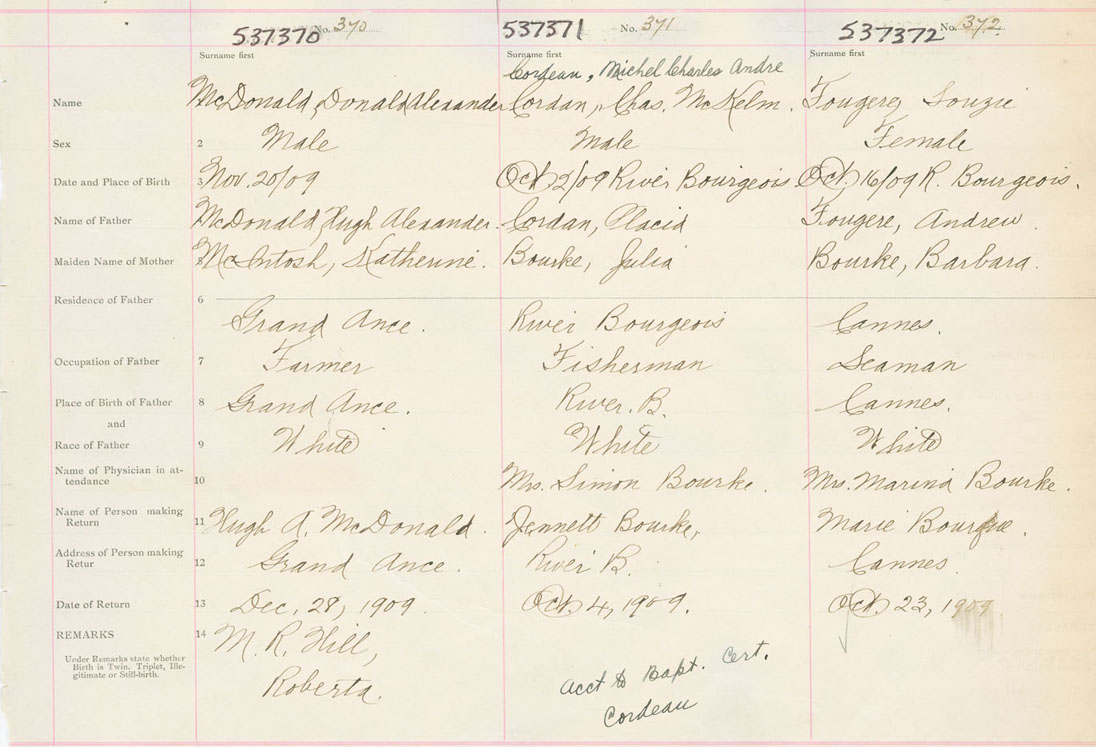 537370 No. 370 537371 No. 371 537372 No. 372
Surname first Surname first Surname first
Cordeau, Michel Charles Andre
Name McDonald, Donald Alexander Cordan, Chas. McKelm. Fougere, Souzie
Sex 2 Male Male Female
Date and Place of Birth 3 Nov. 20/09 Oct. 2/09 River Bourgeois. Oct. 16/09 R. Bourgeois.
Name of Father McDonald, Hugh Alexander. Cordan, Placid Fougere, Andrew.
Maiden Name of Mother 5 McIntosh, Katherine. Bourke, Julia Bourke, Barbara.
Residence of Father 6
Grand Ance. River Bourgeois Cannes.
Occupation of Father 7 Farmer Fisherman Seaman
Place of Birth of Father 8 Grand Ance. River. B. Cannes.
and
Race of Father 9 White White White
Name of Physician in at-
tendance 10 Mrs. Simon Bourke. Mrs. Marina Bourke.
Name of Person making
Return 11 Hugh A. McDonald. Jennett Bourke, Marie
Address of Person making
Retur 12 Grand Ance. River B. Cannes.
Date of Return 13 Dec. 28, 1909. Oct. 4, 1909. Oct. 23, 1909
REMARKS 14 M. R. Hill,
Under Remarks state whether
Birth is Twin, Triplet, Ille-
gitimate or Still-birth.
Roberta.
Acct to Bapt. Cert.
Cordeau